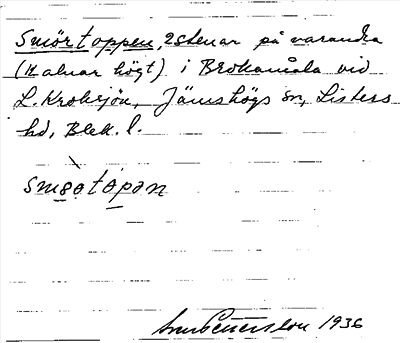 Smörtoppen, 2 stenar på varandra
(12 alnar högt) i Brokamåla vid
L. Kroksjön, Jämshögs sn, Listers
hd, Blek. l.
smøtòpan
1936